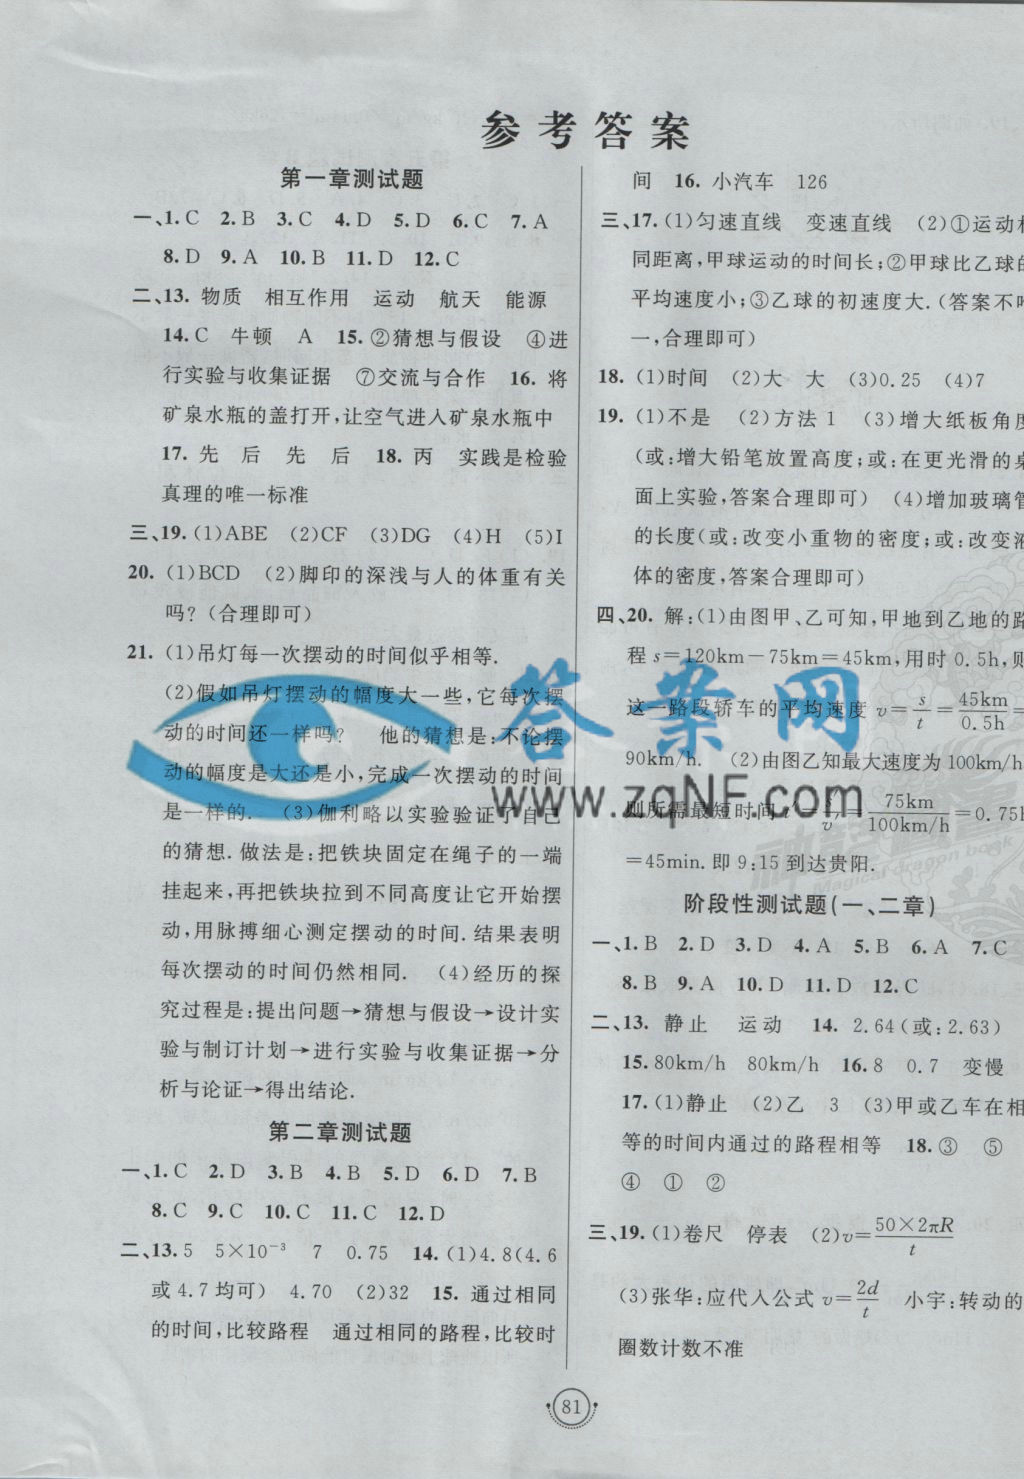 参考答案
第一章测试题
一、1. C 2. B 3. C 4. D 5. D 6. C 7. A
8. D 9. A 10. B 11. D 12. C
二、13. 物质 相互作用 运动 航天 能源
14. C 牛顿 A 15. ②猜想与假设 ④进
行实验与收集证据 ⑦交流与合作 16. 将
矿泉水瓶的盖打开,让空气进入矿泉水瓶中
17. 先 后 先 后 18. 丙 实践是检验
真理的唯一标准
三、19. (1)ABE (2)CF (3)DG (4)H (5)I
20. (1)BCD (2)脚印的深浅与人的体重有关
吗?(合理即可)
21. (1)吊灯每一次摆动的时间似乎相等.
(2)假如吊灯摆动的幅度大一些,它每次摆
动的时间还一样吗? 他的猜想是:不论摆
动的幅度是大还是小,完成一次摆动的时间
是一样的. (3)伽利略以实验验证了自己
的猜想. 做法是:把铁块固定在绳子的一端
挂起来,再把铁块拉到不同高度让它开始摆
动,用脉搏细心测定摆动的时间. 结果表明
每次摆动的时间仍然相同. (4)经历的探
究过程是:提出问题→猜想与假设→设计实
验与制订计划→进行实验与收集证据→分
析与论证→得出结论.
第二章测试题
一、1. C 2. D 3. B 4. B 5. D 6. D 7. B
8. C 9. C 10. C 11. C 12. D
二、13. 5 5×10⁻³ 7 0.75 14. (1)4.8(4.6
或 4.7 均可) 4.70 (2)32 15. 通过相同
的时间,比较路程 通过相同的路程,比较时
间 16. 小汽车 126
三、17. (1)匀速直线 变速直线 (2)①运动相
同距离,甲球运动的时间长;②甲球比乙球的
平均速度小;③乙球的初速度大.(答案不唯
一,合理即可)
18. (1)时间 (2)大 大 (3)0.25 (4)7
19. (1)不是 (2)方法 1 (3)增大纸板角度
(或:增大铅笔放置高度;或:在更光滑的桌
面上实验,答案合理即可) (4)增加玻璃管
的长度(或:改变小重物的密度;或:改变液
体的密度,答案合理即可)
四、20. 解:(1)由图甲、乙可知,甲地到乙地的路
程 s=120km−75km=45km,用时 0.5h,则
这一路段轿车的平均速度 v=s/t=45km/0.5h=
90km/h. (2)由图乙知最大速度为 100km/h
则所需最短时间 t′=s/v′=75km/100km/h=0.75h
=45min. 即 9:15 到达贵阳.
阶段性测试题(一、二章)
一、1. B 2. D 3. D 4. A 5. B 6. A 7. C
8. B 9. A 10. D 11. D 12. C
二、13. 静止 运动 14. 2.64(或:2.63)
15. 80km/h 80km/h 16. 8 0.7 变慢
17. (1)静止 (2)乙 3 (3)甲或乙车在相
等的时间内通过的路程相等 18. ③ ⑤
④ ① ②
三、19. (1)卷尺 停表 (2)v=50×2πR/t
(3)张华:应代入公式 v=2d/t 小宇:转动的
圈数计数不准
81
答案网
www.zqNF.com
Magical dragon book